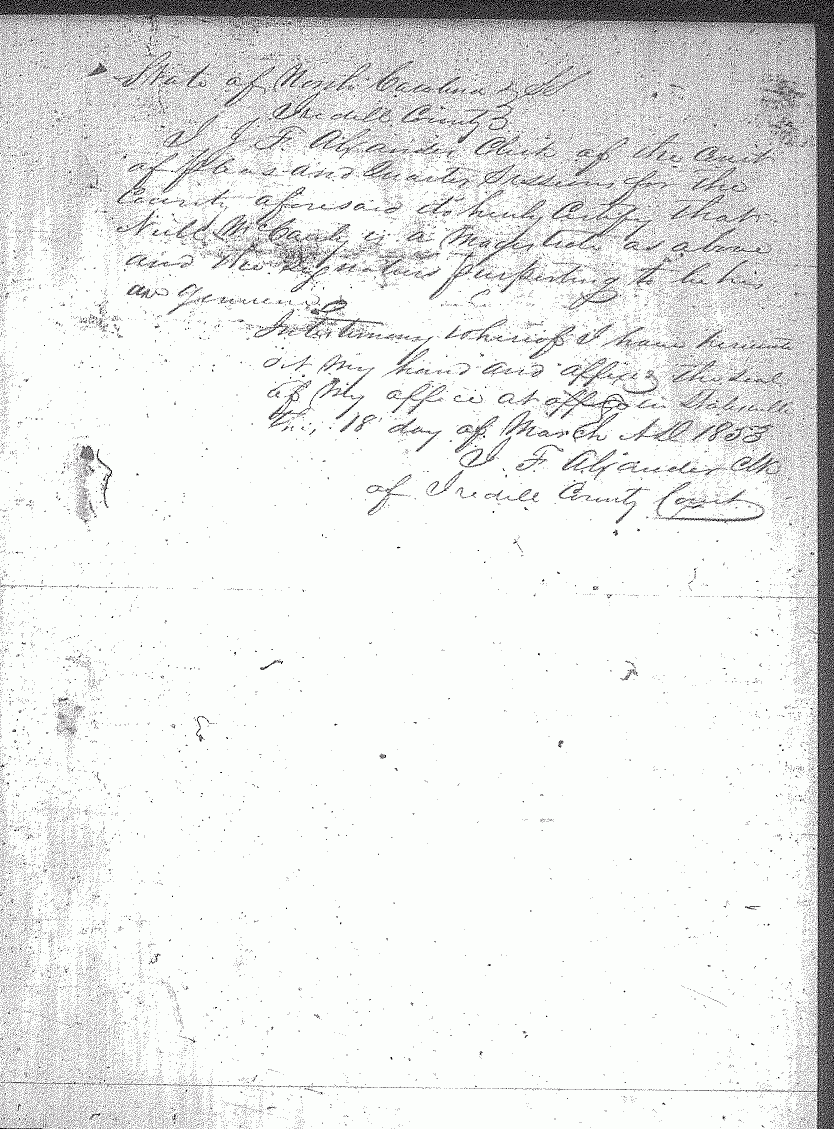 State of North Carolina } Sct
Iredell County }
I J. F. Alexander Clerk of the Court
of Pleas and Quarter Sessions for the
County aforesaid do hereby Certify that
Neill McCauly is a Magistrate as above
and the signatures purporting to be his
are genuine
In testimony whereof I have hereunto
set my hand and affixed the seal
of my office at office in Statesville
this 18 day of March AD 1853
J. F. Alexander Clk
of Iredell County Court